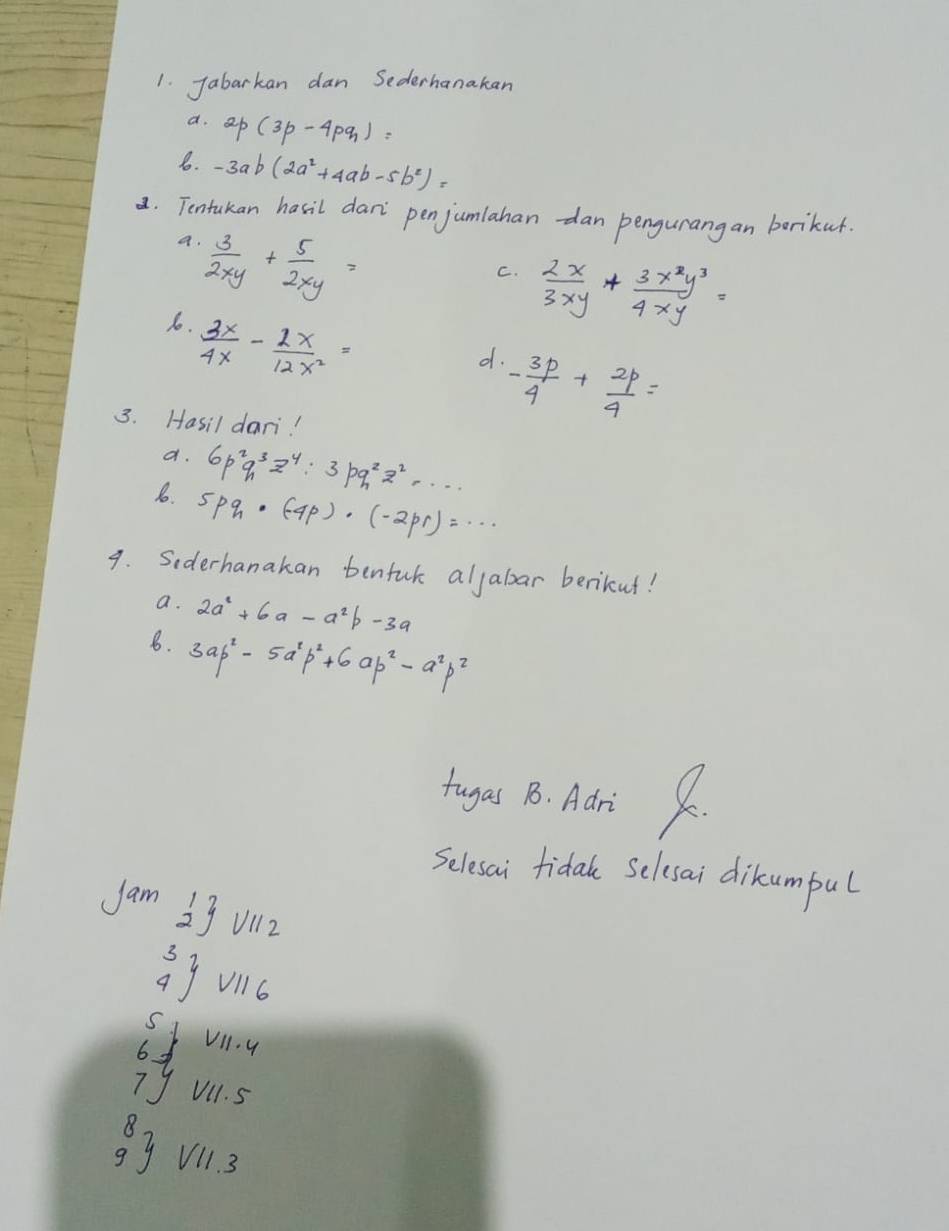 1. Jabarkan dan Sederhanakan
a. 2p (3p - 4pq) =
b. -3ab (2a² + 4ab - 5b²) =
2. Tentukan hasil dari penjumlahan dan pengurangan berikut.
a. 3/2xy + 5/2xy =
c. 2x/3xy + 3x²y³/4xy =
b. 3x/4x - 2x/12x² =
d. -3p/4 + 2p/4 =
3. Hasil dari!
a. 6p²q³z⁴ : 3pq²z² = ....
b. 5pq • (-4p) • (-2pr) = ...
4. Sederhanakan bentuk aljabar berikut!
a. 2a² + 6a - a²b - 3a
b. 3ap² - 5a²p² + 6ap² - a²p²
tugas B. Adri
Selesai tidak Selesai dikumpul
Jam 1 2 } VII 2
3 4 } VII 6
5 6 } VII.4
7 } VII.5
8 9 } VII.3